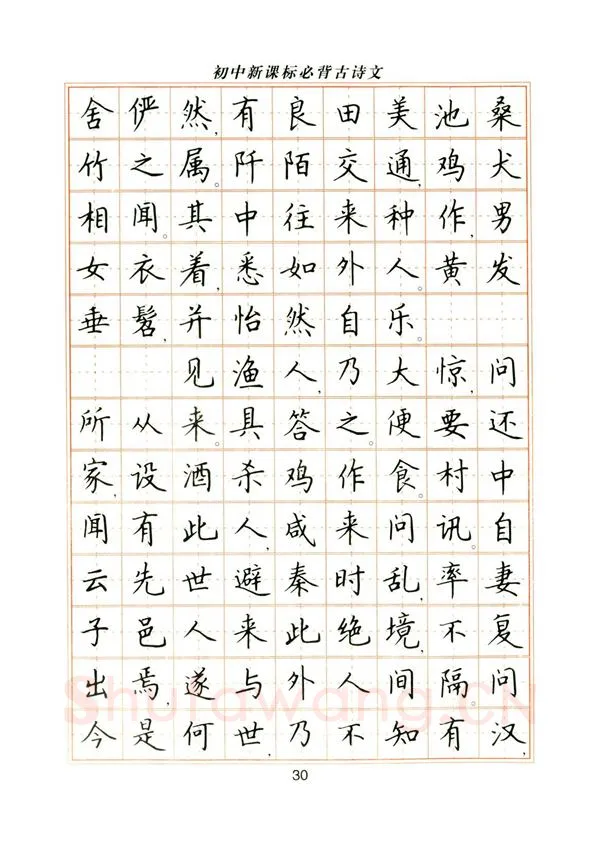 初中新课标必背古诗文
舍俨然,有良田美池桑
竹之属。阡陌交通,鸡犬
相闻。其中往来种作,男
女衣着,悉如外人。黄发
垂髫,并怡然自乐。
见渔人,乃大惊,问
所从来。具答之。便要还
家,设酒杀鸡作食。村中
闻有此人,咸来问讯。自
云先世避秦时乱,率妻
子邑人来此绝境,不复
出焉,遂与外人间隔。问
今是何世,乃不知有汉,
Shufawang.CN
30